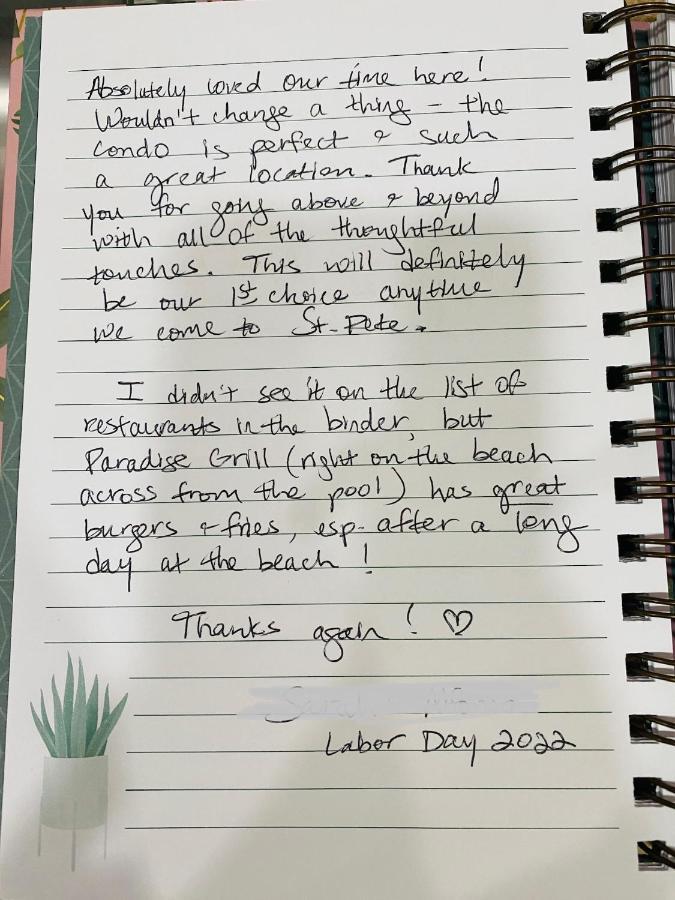 Absolutely loved our time here!
Wouldn't change a thing - the
condo is perfect & such
a great location. Thank
you for going above & beyond
with all of the thoughtful
touches. This will definitely
be our 1st choice anytime
we come to St. Pete.
I didn't see it on the list of
restaurants in the binder, but
Paradise Grill (right on the beach
across from the pool) has great
burgers & fries, esp. after a long
day at the beach!
Thanks again! ♡
Labor Day 2022